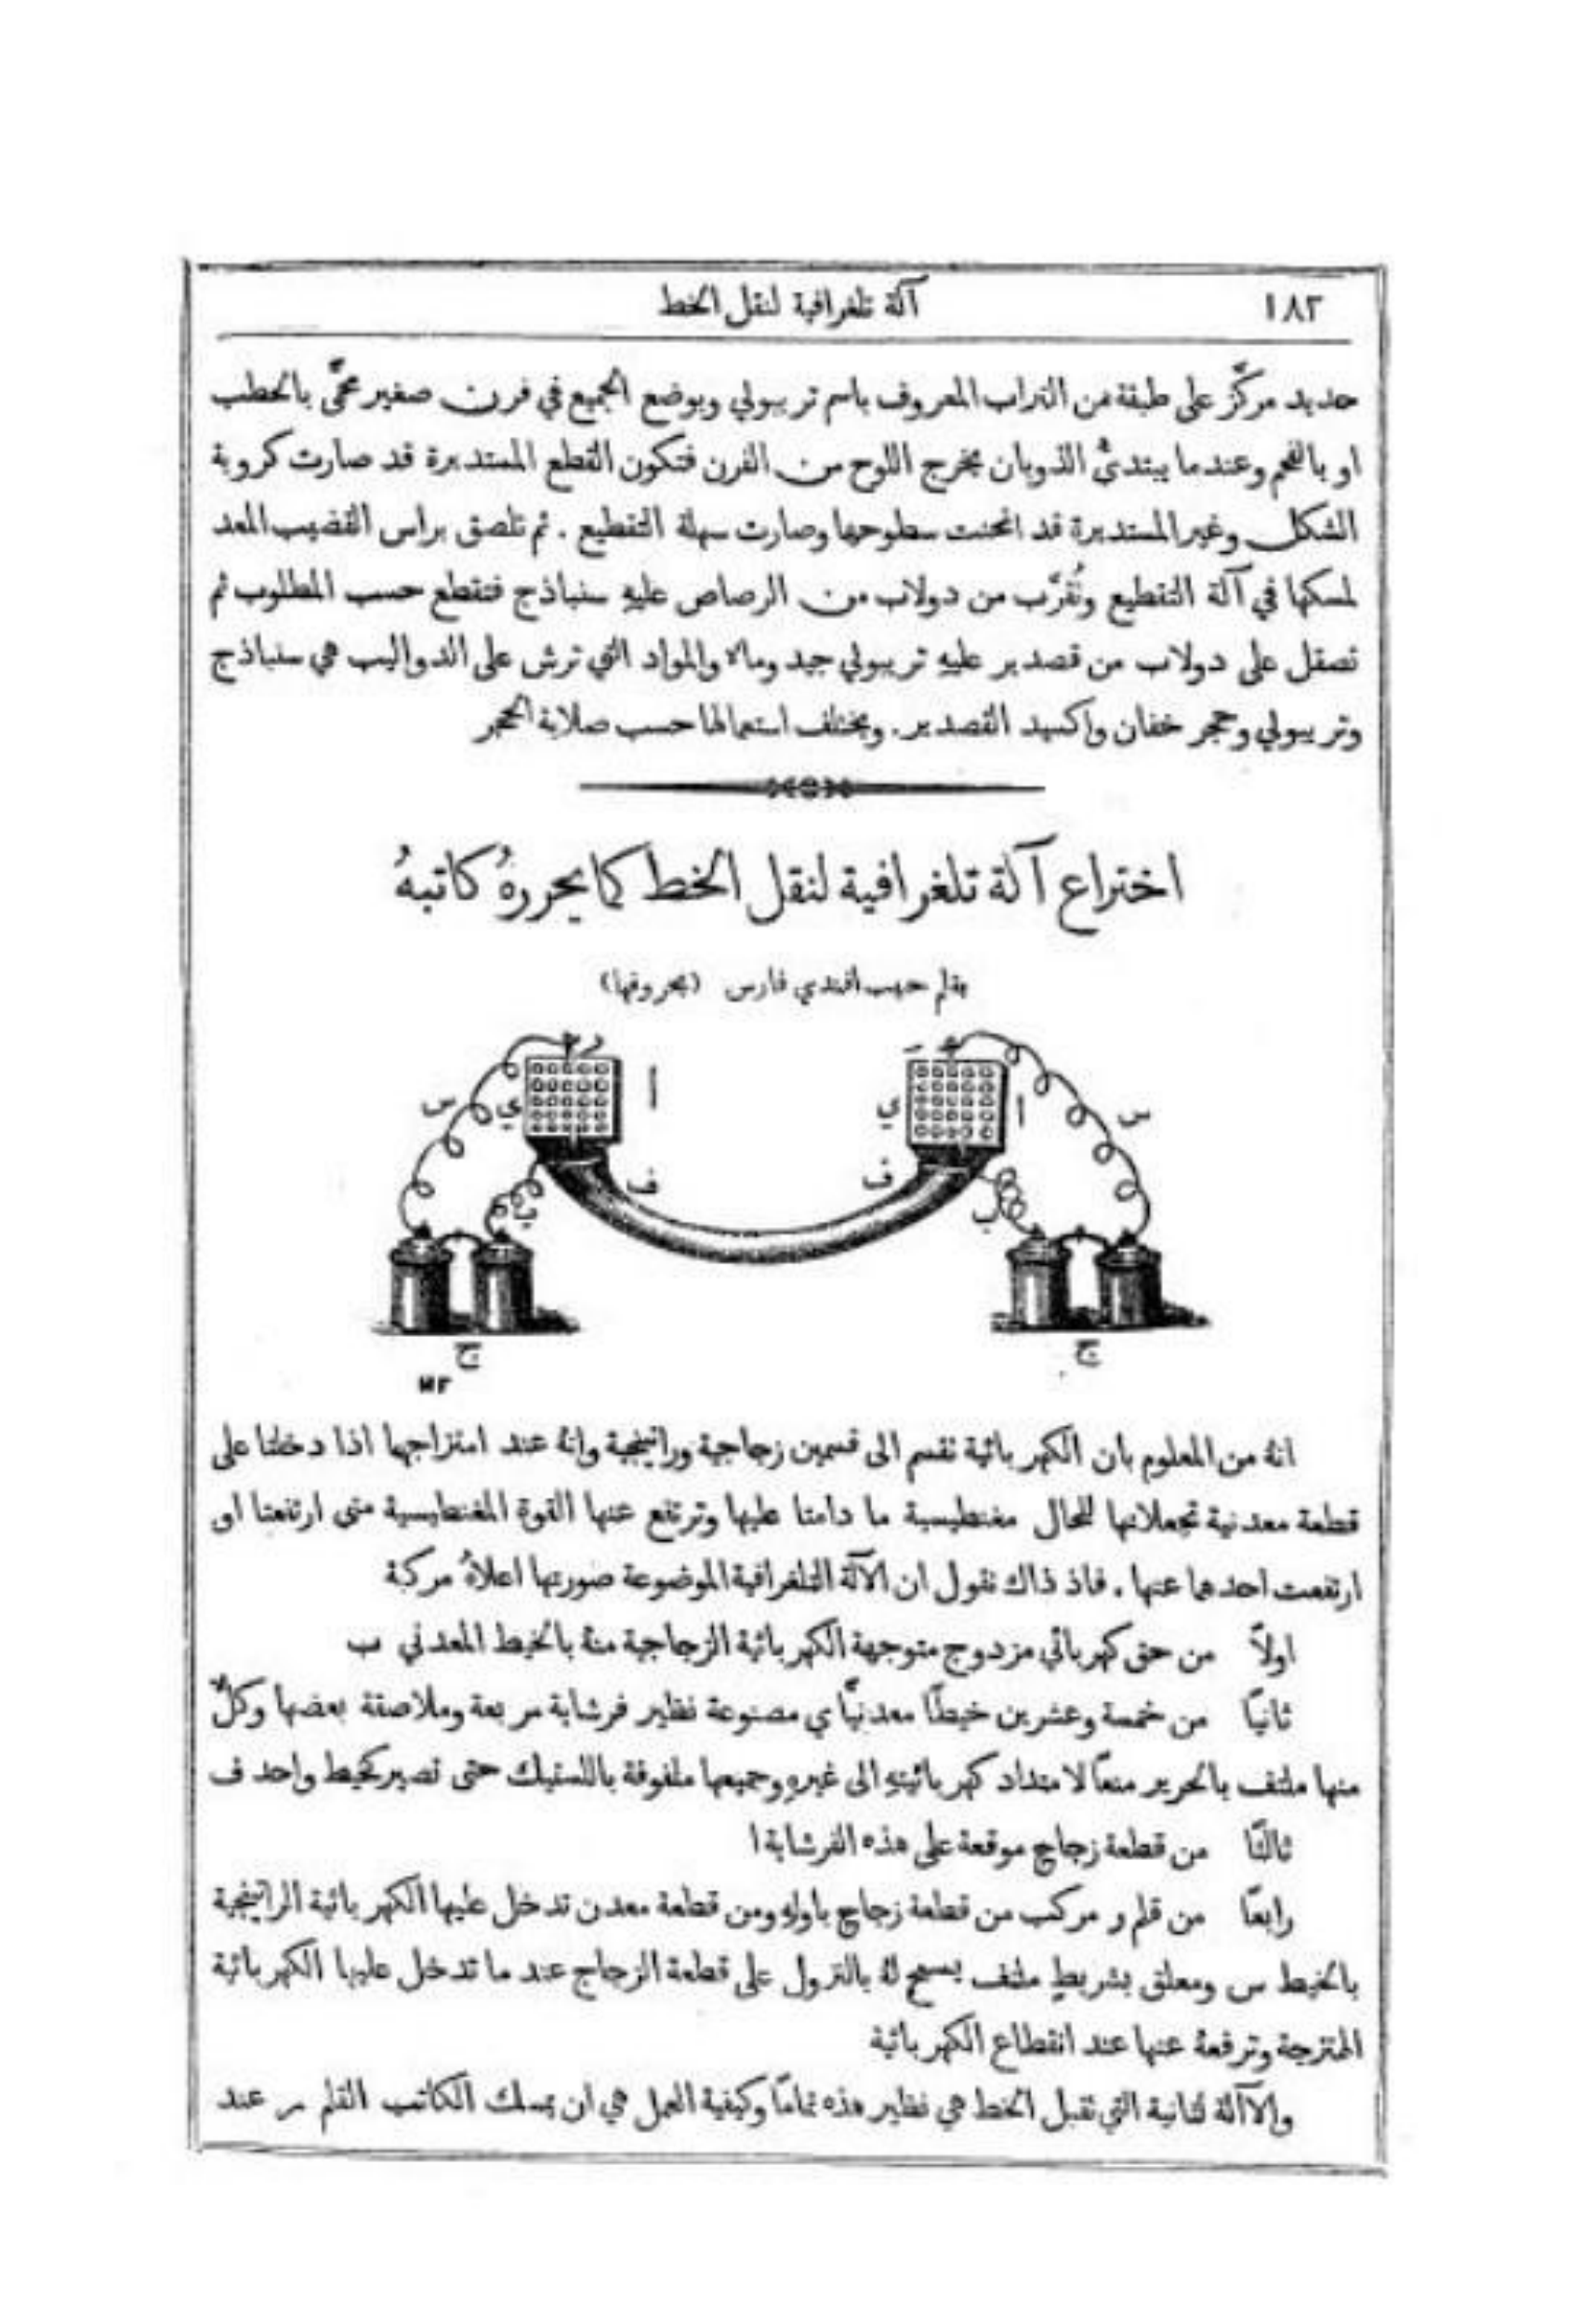 ١٨٢ آلة تلغرافية لنقل الخط
حديد مركَّز على طبقة من التراب المعروف باسم تريبولي ويوضع الجميع في فرن صغير محمَّى بالحطب
او بالفحم وعند ما يبتدئُ الذوبان يخرج اللوح من الفرن فتكون القطع المستديرة قد صارت كروية
الشكل وغير المستديرة قد انحنت سطوحها وصارت سهلة التقطيع . ثم تلصق براس القضيب المعد
لمسكها في آلة التقطيع وتُقرَّب من دولاب من الرصاص عليهِ سنباذج فتقطع حسب المطلوب ثم
تصقل على دولاب من قصدير عليهِ تريبولي جيد وماء والمواد التي ترش على الدواليب هي سنباذج
وتريبولي وحجر خفان واكسيد القصدير. ويختلف استعمالها حسب صلابة الحجر
اختراع آلة تلغرافية لنقل الخط كما يحررهُ كاتبهُ
بقلم حبيب افندي فارس (بحروفها)
ر
ا
ي
س
ف
ب
ج
ا
ي
س
ف
ب
ج
انهُ من المعلوم بان الكهربائية تقسم الى قسمين زجاجية وراتينجية وانهُ عند امتزاجهما اذا دخلتا على
قطعة معدنية تجعلانها للحال مغنطيسية ما دامتا عليها وترتفع عنها القوة المغنطيسية متى ارتفعتا او
ارتفعت احدهما عنها . فاذ ذاك نقول ان الآلة التلغرافية الموضوعة صورتها اعلاهُ مركبة
اولاً من حق كهربائي مزدوج متوجهة الكهربائية الزجاجية منهُ بالخيط المعدني ب
ثانيًا من خمسة وعشرين خيطًا معدنيًّا ي مصنوعة نظير فرشاية مربعة وملاصقة بعضها وكلٌّ
منها ملتف بالحرير منعًا لامتداد كهربائيتهِ الى غيرهِ وجميعها ملفوفة باللستيك حتى تصير كخيط واحد ف
ثالثًا من قطعة زجاج موقعة على هذه الفرشاية ا
رابعًا من قلم ر مركب من قطعة زجاج باولهِ ومن قطعة معدن تدخل عليها الكهربائية الراتينجية
بالخيط س ومعلق بشريطٍ ملتف يسمح لهُ بالنزول على قطعة الزجاج عند ما تدخل عليها الكهربائية
الممتزجة وترفعهُ عنها عند انقطاع الكهربائية
والآالة لثانية التي تقبل الخط هي نظير هذه تمامًا وكيفية العمل هي ان يمسك الكاتب القلم ر عند